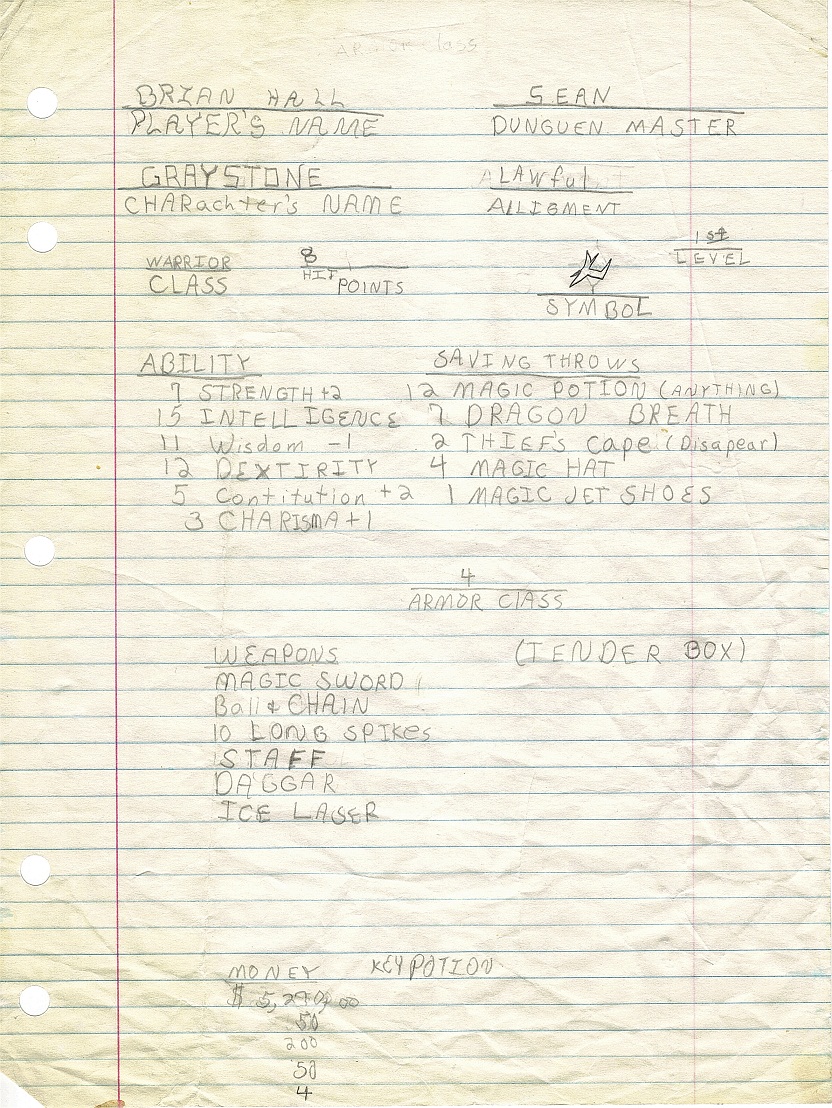 ARmor Class
BRIAN HALL SEAN
PLAYER'S NAME DUNGUEN MASTER
GRAYSTONE LAWful
CHARachter's NAME ALLIGMENT
1st
LEVEL
WARRIOR 8
CLASS HIT POINTS
SYMBOL
ABILITY SAVING THROWS
7 STRENGTH +2 12 MAGIC POTION (ANYTHING)
15 INTELLIGENCE 7 DRAGON BREATH
11 Wisdom -1 2 THIEF'S cape (Disapear)
12 DEXTIRITY 4 MAGIC HAT
5 Contitution +2 1 MAGIC JET SHOES
3 CHARISMA +1
4
ARMOR ClASS
WEAPONS (TENDER BOX)
MAGIC SWORD
Ball & CHAIN
10 LONG SPIKes
STAFF
DAGGAR
ICE LASER
MONEY KEY POTION
50
200
50
4